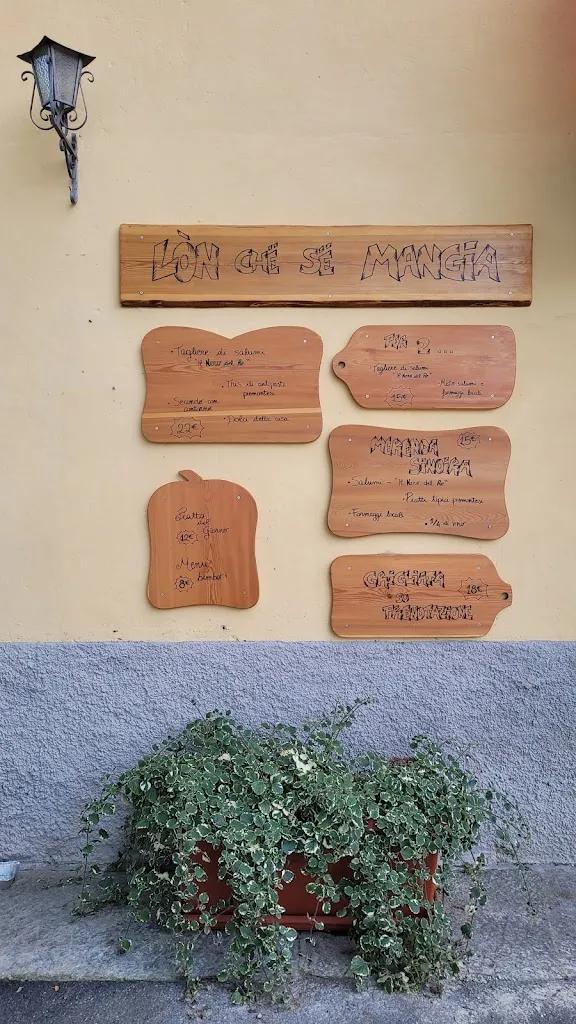 LÒN CHË SË MANGIA
• Tagliere di salumi
"Il Nero del Re"
• Tris di antipasti
piemontesi
• Secondo con
contorno
22€
• Dolci della casa
PER 2 ...
Tagliere di salumi
"Il Nero del Re"
• Misto salumi e
formaggi locali
15€
MERENDA
SINOIRA
15€
• Salumi - "Il Nero del Re"
• Piatti tipici piemontesi
• Formaggi locali
• 1/4 di vino
Piatto
del
Giorno
12€
Menù
bimbo!
8€
GRIGLIATA
SU
PRENOTAZIONE
18€